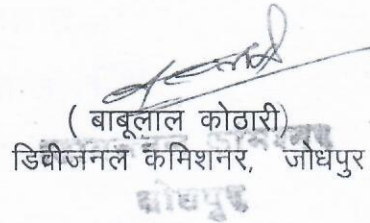 ( बाबूलाल कोठारी)
डिवीजनल कमिशनर, जोधपुर
जोधपुर